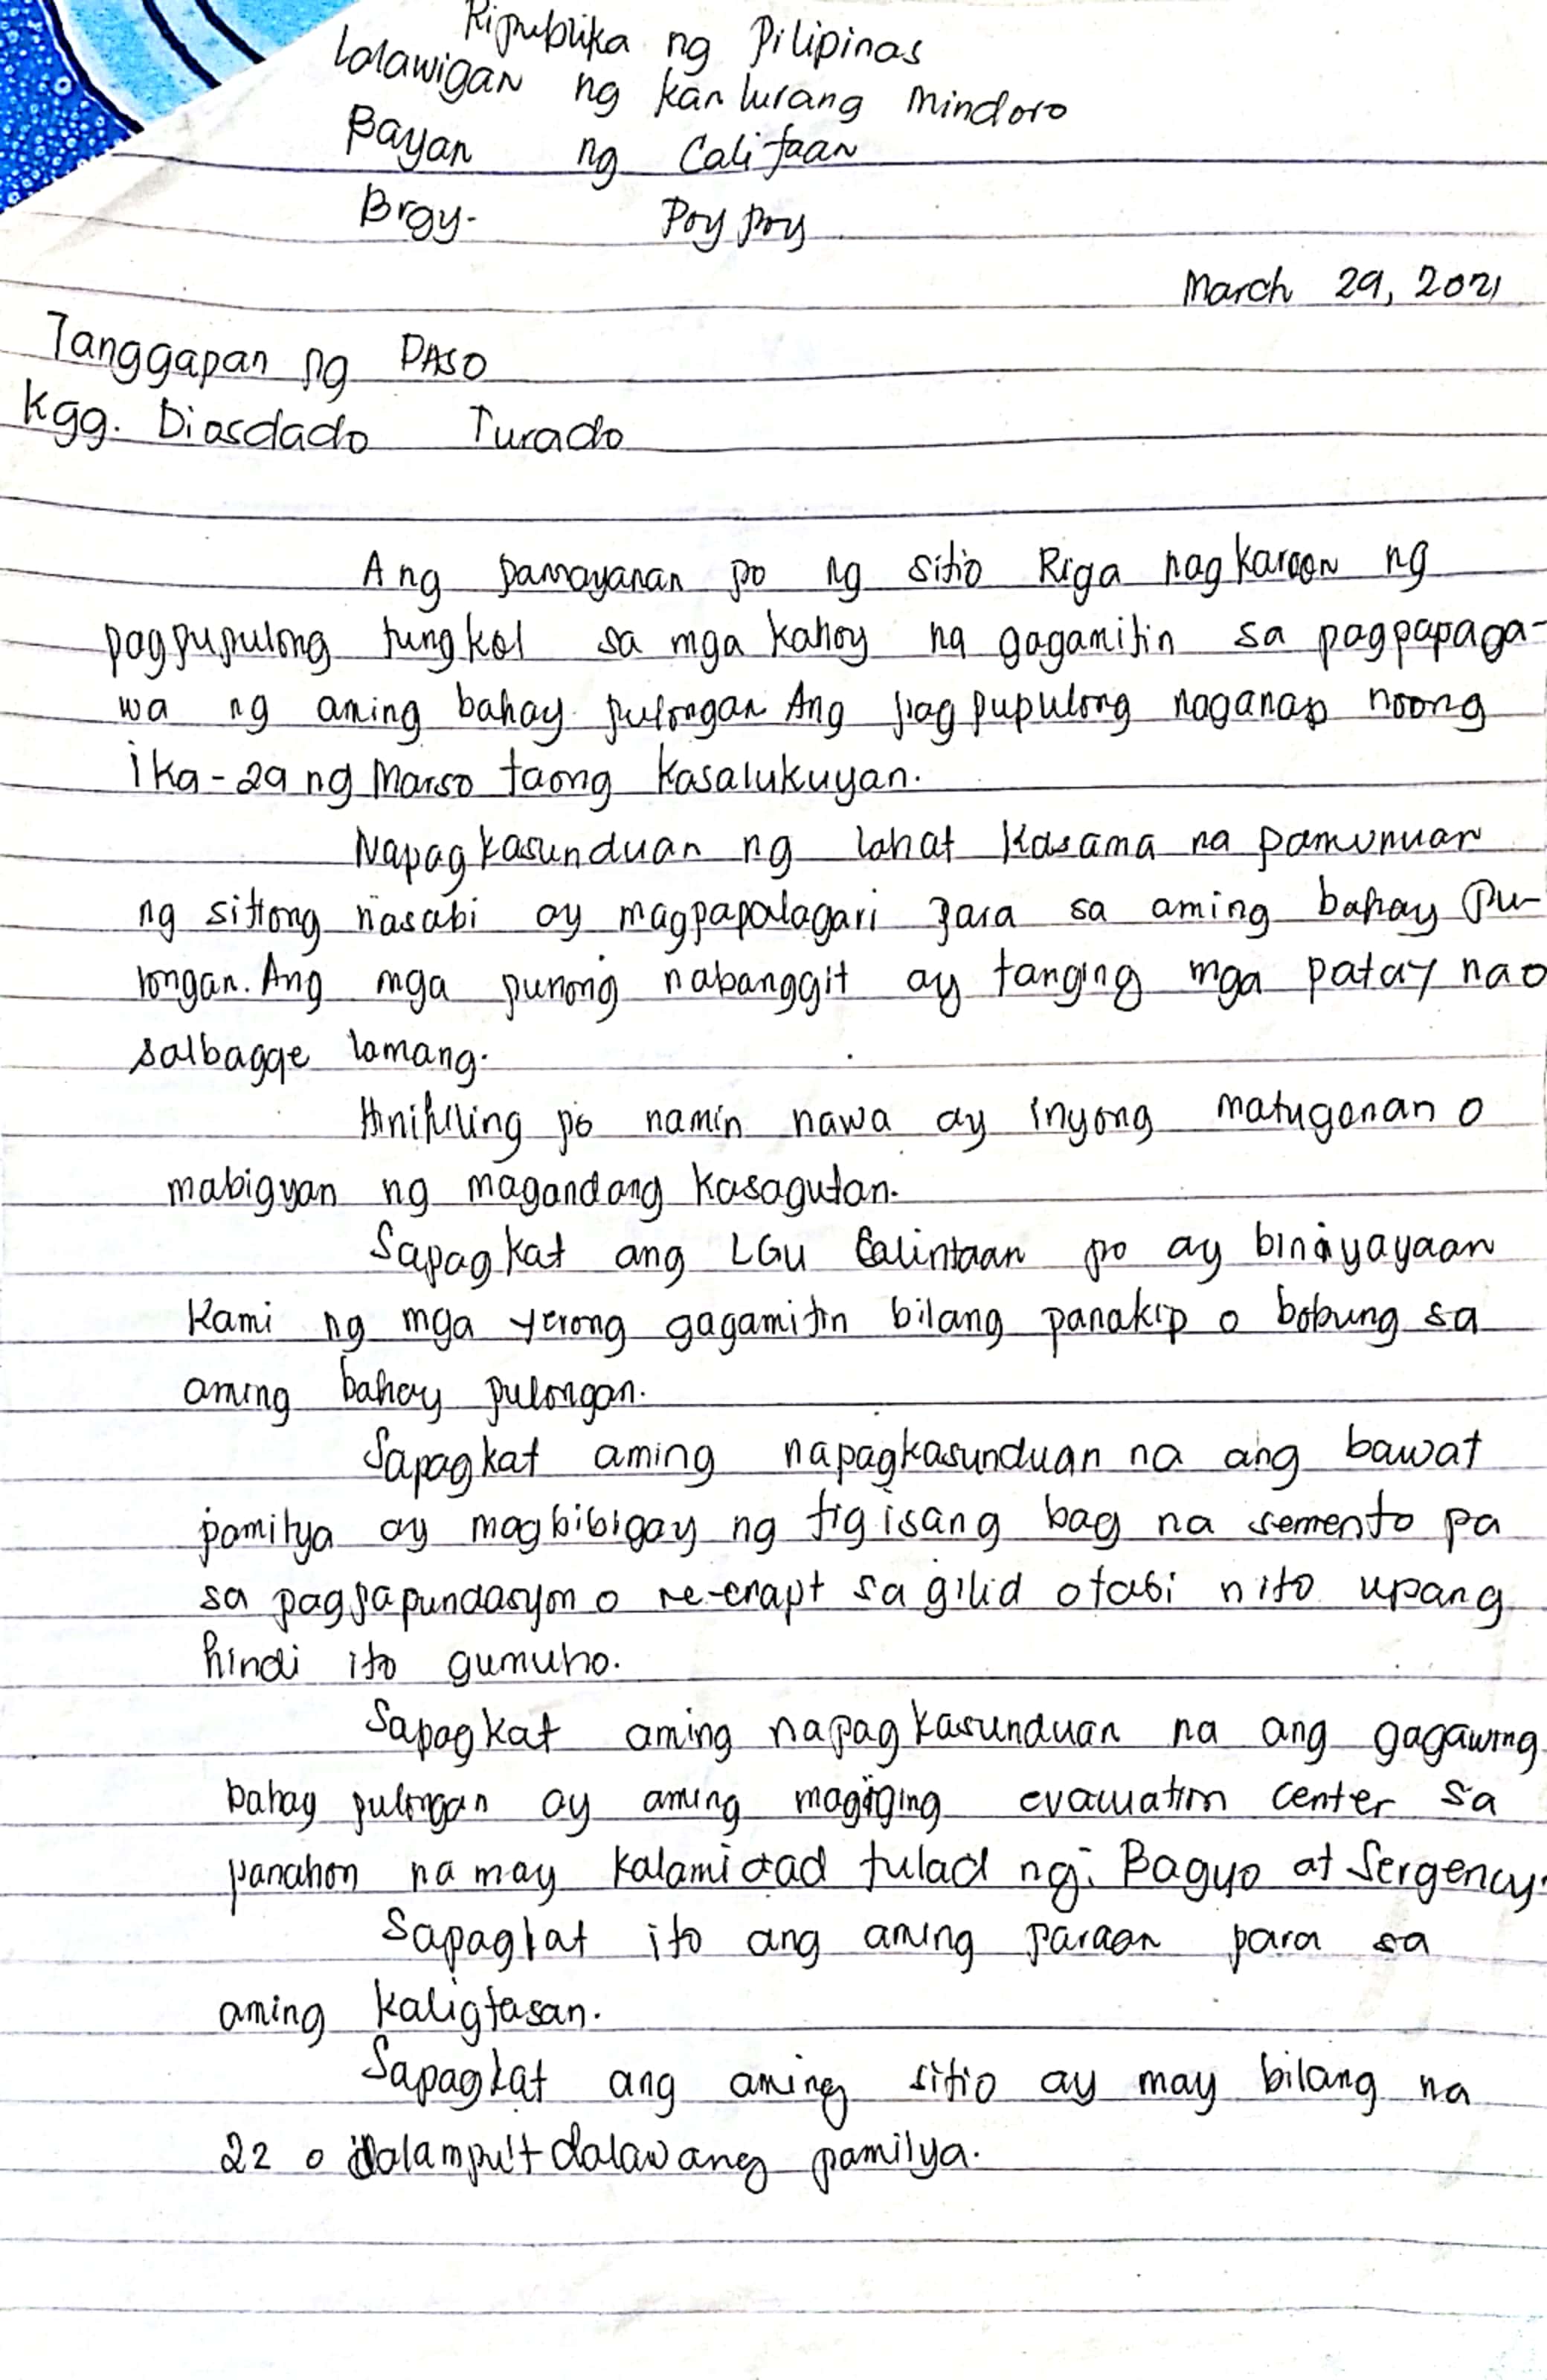 Ripublika ng Pilipinas
Lalawigan ng kanlurang mindoro
Bayan ng Calitaan
Brgy. Poy poy
March 29, 2021
Tanggapan ng PASO
Kgg. Diosdado Turado
Ang pamayanan po ng sitio Riga nagkaroon ng
pagpupulong tungkol sa mga kahoy na gagamitin sa pagpapaga-
wa ng aming bahay pulongan Ang pagpupulong naganap noong
ika-29 ng Marso taong kasalukuyan.
Napagkasunduan ng lahat kasama na pamunuan
ng sitiong nasabi ay magpapalagari para sa aming bahay Pu-
longan. Ang mga punong nabanggit ay tanging mga patay na o
salbagge lamang.
Hinihiling po namin nawa ay inyong matugonan o
mabigyan ng magandang kasagutan.
Sapagkat ang LGU Calintaan po ay binayayaan
kami ng mga yerong gagamitin bilang panakip o bobung sa
aming bahay pulongan.
Sapagkat aming napagkasunduan na ang bawat
pamilya ay magbibigay ng tig isang bag na semento pa
sa pagpapundasyon o re-erapt sa gilid o tabi nito upang
hindi ito gumuho.
Sapagkat aming napagkasunduan na ang gagawing
bahay pulongan ay aming magiging evacuation center sa
panahon na may kalamidad tulad ng: Bagyo at Sergency.
Sapagkat ito ang aming paraan para sa
aming kaligtasan.
Sapagkat ang aming sitio ay may bilang na
22 o dalampu't dalawang pamilya.